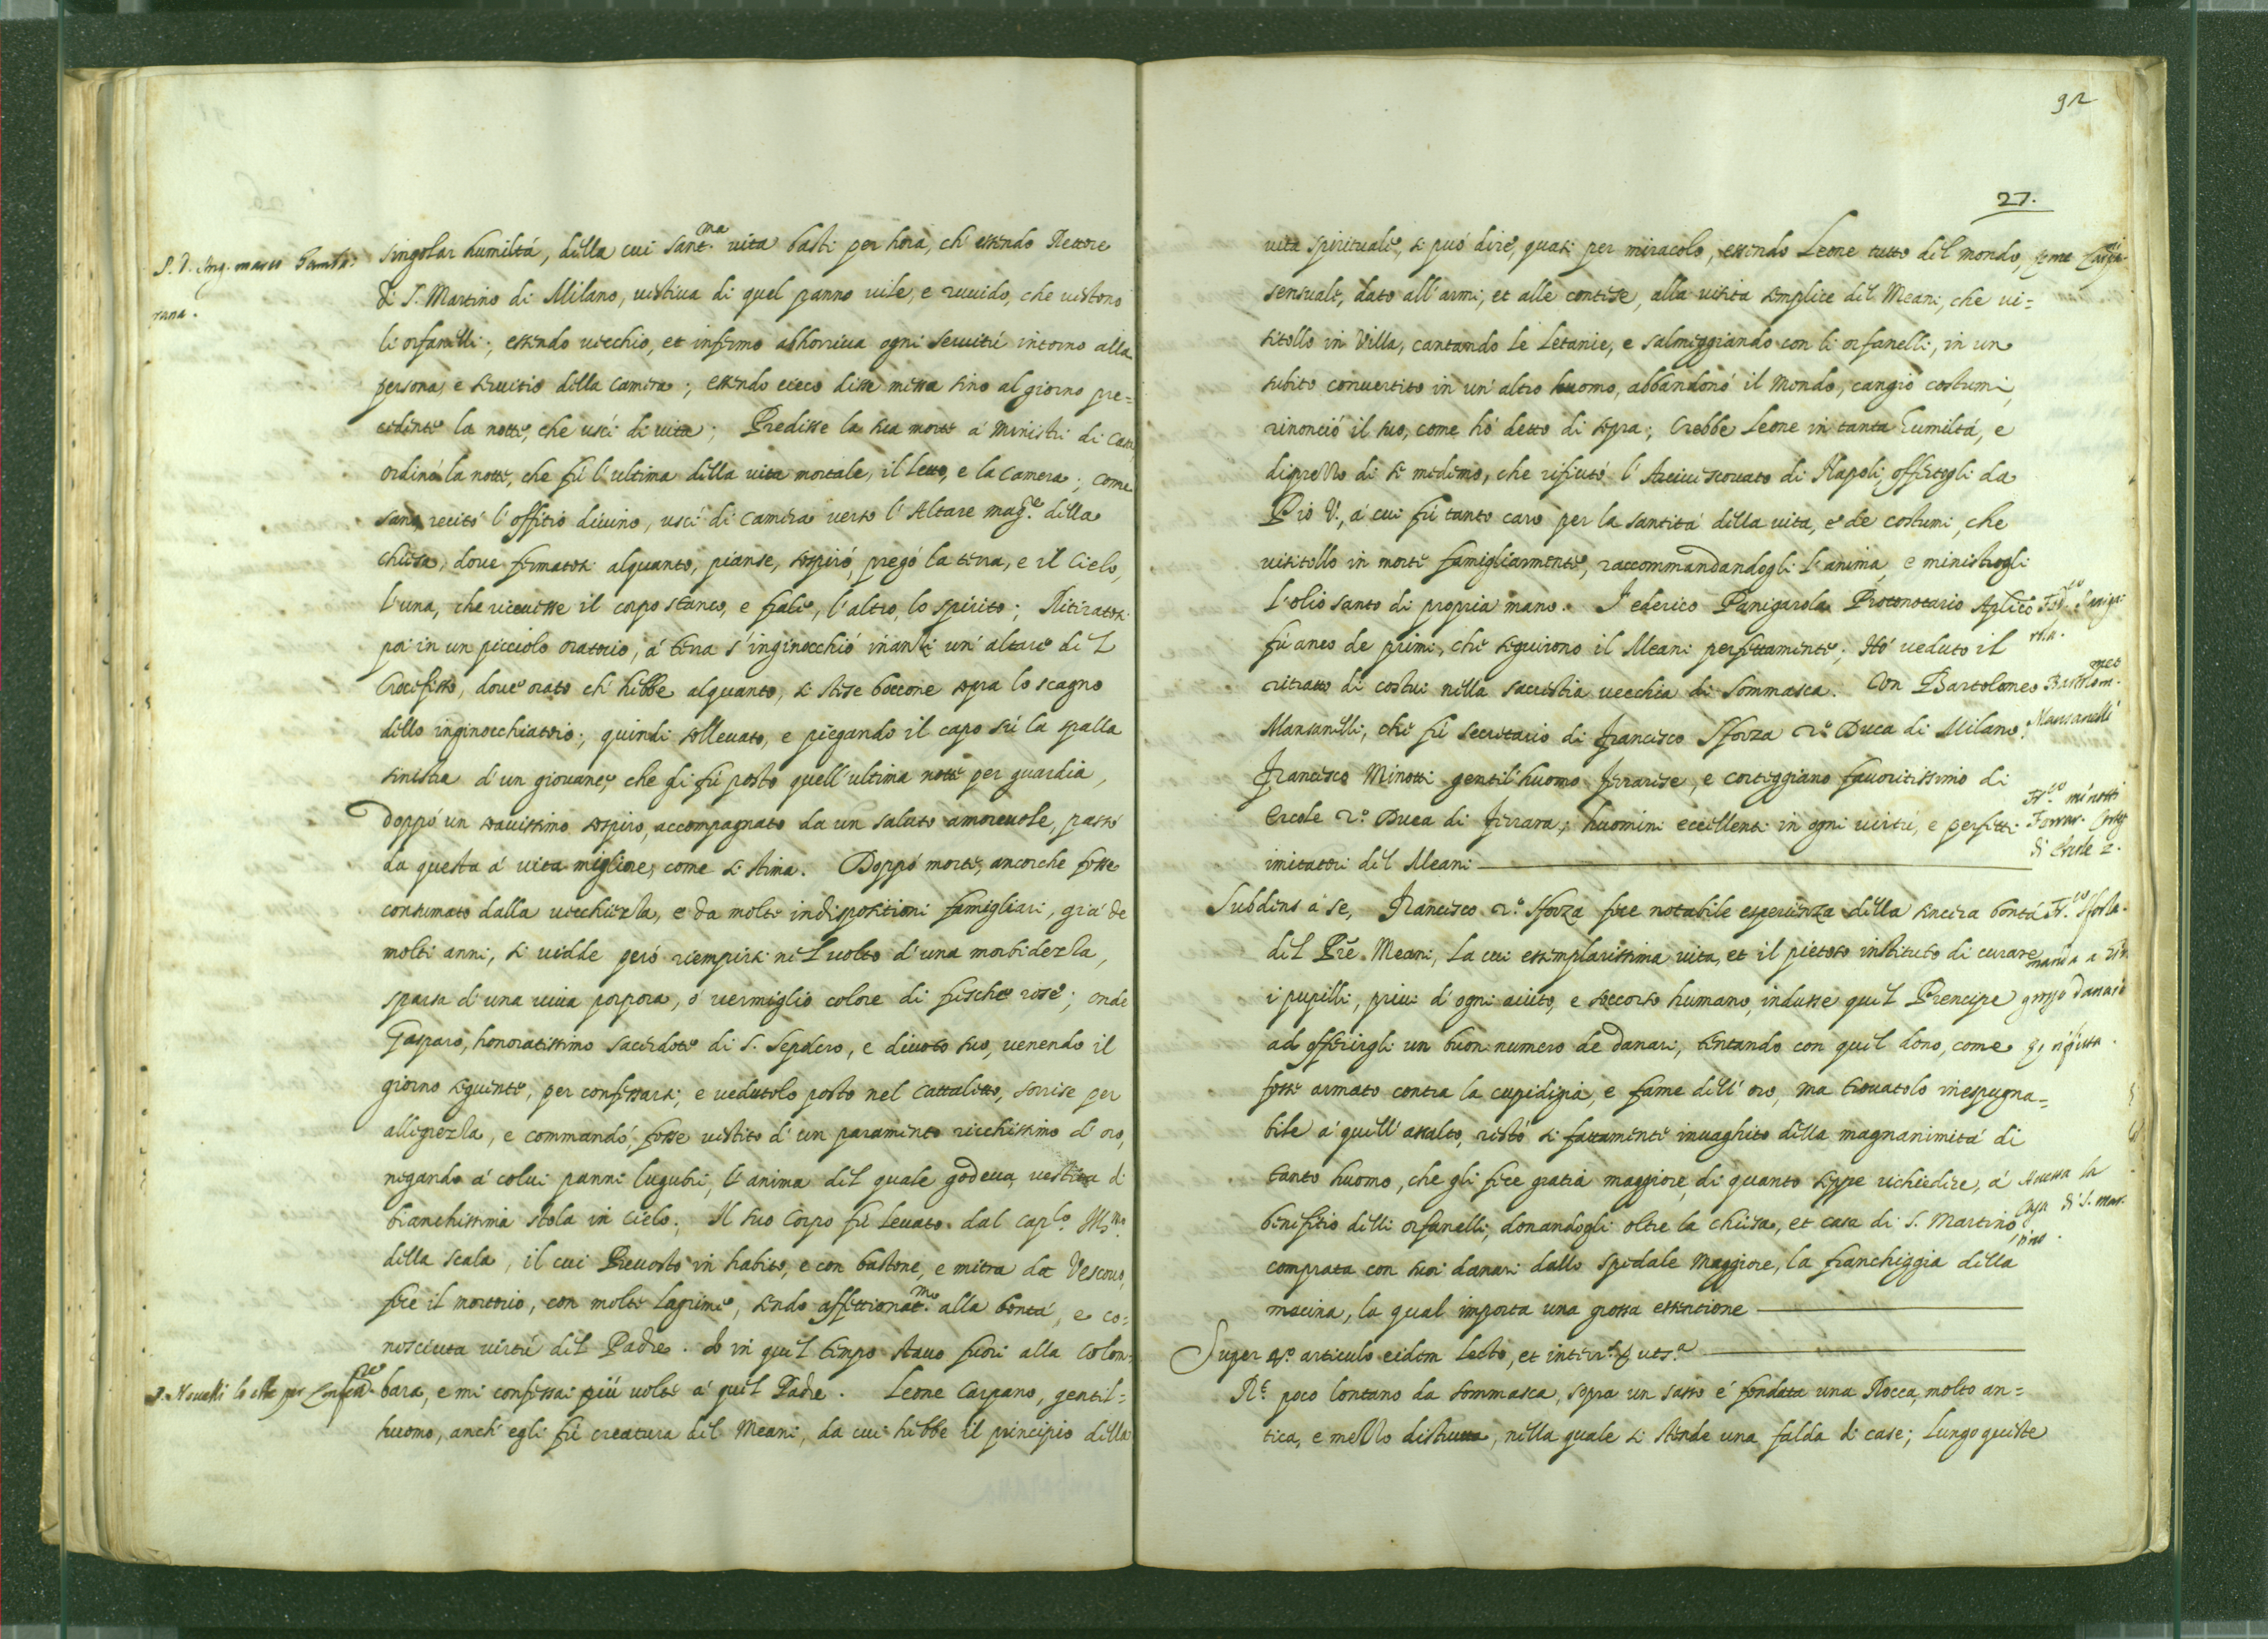 singolar humiltá, della cui sant.ma vita basti per hora, ch'essendo Rettore
P. D. Ang. marco Gamba=
rana.
di S. Martino di Milano, vestiva di quel panno vile, e ruvido, che vestono
li orfanelli; essendo vecchio, et infermo abhorriva ogni servitú intorno alla
persona, e servitio della camera; essendo cieco disse messa sino al giorno pre=
cedente la notte, che uscí di vita; Predisse la sua morte á Ministri di Casa
ordinó la notte, che fú l'ultima della vita mortale, il letto, e la camera; come
sano recitó l'offitio divino, uscí di camera verso l'Altare mag.re della
chiesa, dove fermatosi alquanto, pianse, sospiró, pregó la terra, e il Cielo,
l'una, che ricevesse il corpo stanco, e frale, l'altro, lo spirito; Ritiratosi
poi in un picciolo oratorio, á terra s'inginocchió inanti un'altare del
Crocefisso, dove orato ch'hebbe alquanto, si stese boccone sopra lo scagno
dello inginocchiatoio; quindi sollevato, e piegando il capo sú la spalla
sinistra d'un giovane, che gli fú posto quell'ultima notte per guardia,
doppó un soavissimo sospiro, accompagnato da un saluto amorevole, passó
da questa á vita migliore, come si stima. Doppó morte, ancorche fosse
consumato dalla vecchiezza, e da molte indispositioni famigliari, giá de
molti anni, si vidde peró riempirsi nel volto d'una morbidezza,
sparsa d'una viva porpora, ó vermiglio colore di fresche rose; onde
Gasparo, honoratissimo sacerdote di S. Sepolcro, e divoto suo, venendo il
giorno seguente, per confessarsi, e vedutolo posto nel cattaletto, sorrise per
allegrezza, e commandó, fosse vestito d'un paramento ricchissimo d'oro,
negando á colui panni lugubri, l'anima del quale godeva, vestita di
bianchissima stola in Cielo. Il suo Corpo fú levato dal cap.lo
della scala, il cui Prevosto in habito, e con bastone, e mitra da Vescovo,
fece il mortorio, con molte lagrime, sendo affettionat.mo alla bontá, e co=
nosciuta virtú del Padre. Io in quel tempo stavo fuori alla Colom=
P. Novelli lo ebbe per Confess.re
bara, e mi confessai piú volte á quel Padre. Leone Carpano, gentil=
huomo, anch'egli fú creatura del Meani, da cui hebbe il principio della
92
27.
vita spirituale, si puó dire, quasi per miracolo, essendo Leone tutto del mondo,
sensuale, dato all'armi, et alle contese, alla visita semplice del Meani, che vi=
sitollo in Villa, cantando le Letanie, e salmeggiando con li orfanelli, in un
subito convertito in un'altro huomo, abbandonó il Mondo, cangió costumi,
rinonció il suo, come hó detto di sopra; Crebbe Leone in tanta humiltá, e
disprezzo di se medemo, che rifiutó l'Arcivescovato di Napoli, offertogli da
Pio V., á cui fú tanto caro per la santitá della vita, e de costumi, che
visitollo in morte famigliarmente, raccommandandogli l'anima, e ministrogli
L'olio santo di propria mano. Federico Panigarola Protonotario Aplico
Fed.co Paniga
rola.
fú anco de primi, che seguirono il Meani perfettamente; Hó veduto il
ritratto di costui nella sacristia vecchia di Sommasca. Con Bartolomeo
Bartolom.meo
Mansanelli
Mansanelli, che fú secretario di Francesco Sforza 2.o Duca di Milano.
Francesco Minotti gentil'huomo Ferrarese, e corteggiano favoritissimo di
Fr.co minotti
Ferrar. Cortg
di Ercole 2.
Ercole 2.o Duca di Ferrara, huomini eccellenti in ogni virtú, e perfetti
imitatori del Meani
Subdens á se, Francesco 2.o Sforza fece notabile esperienza della sincera bontá
Fr.co Sforza.
del Pre Meani, la cui essemplarissima vita, et il pietoso instituto di curare
i pupilli, privi d'ogni aiuto, e soccorso humano, indusse quel Prencipe
manda a
grosso danaro
ad offerirgli un buon numero de danari, tentando con quel dono, come
rifiuta.
fosse armato contra la cupidigia, e fame dell'oro, ma trovatolo inespugna=
bile á quell'assalto, restó si fattamente invaghito della magnanimitá di
tanto huomo, che gli fece gratia maggiore, di quanto seppe richiedere, á
benefitio delli orfanelli, donandogli oltre la chiesa, et casa di S. Martino
la
Casa di S. Mar.
tino.
comprata con suoi danari dallo spedale Maggiore, la franchiggia della
macina, la qual importa una grossa essentione
Super 4.o articulo eidem Lecto, et
R.t poco lontano da Sommasca, sopra un sasso é fondata una Rocca, molto an=
tica, e mezzo distrutta, nella quale si stende una falda di case; Lungo queste